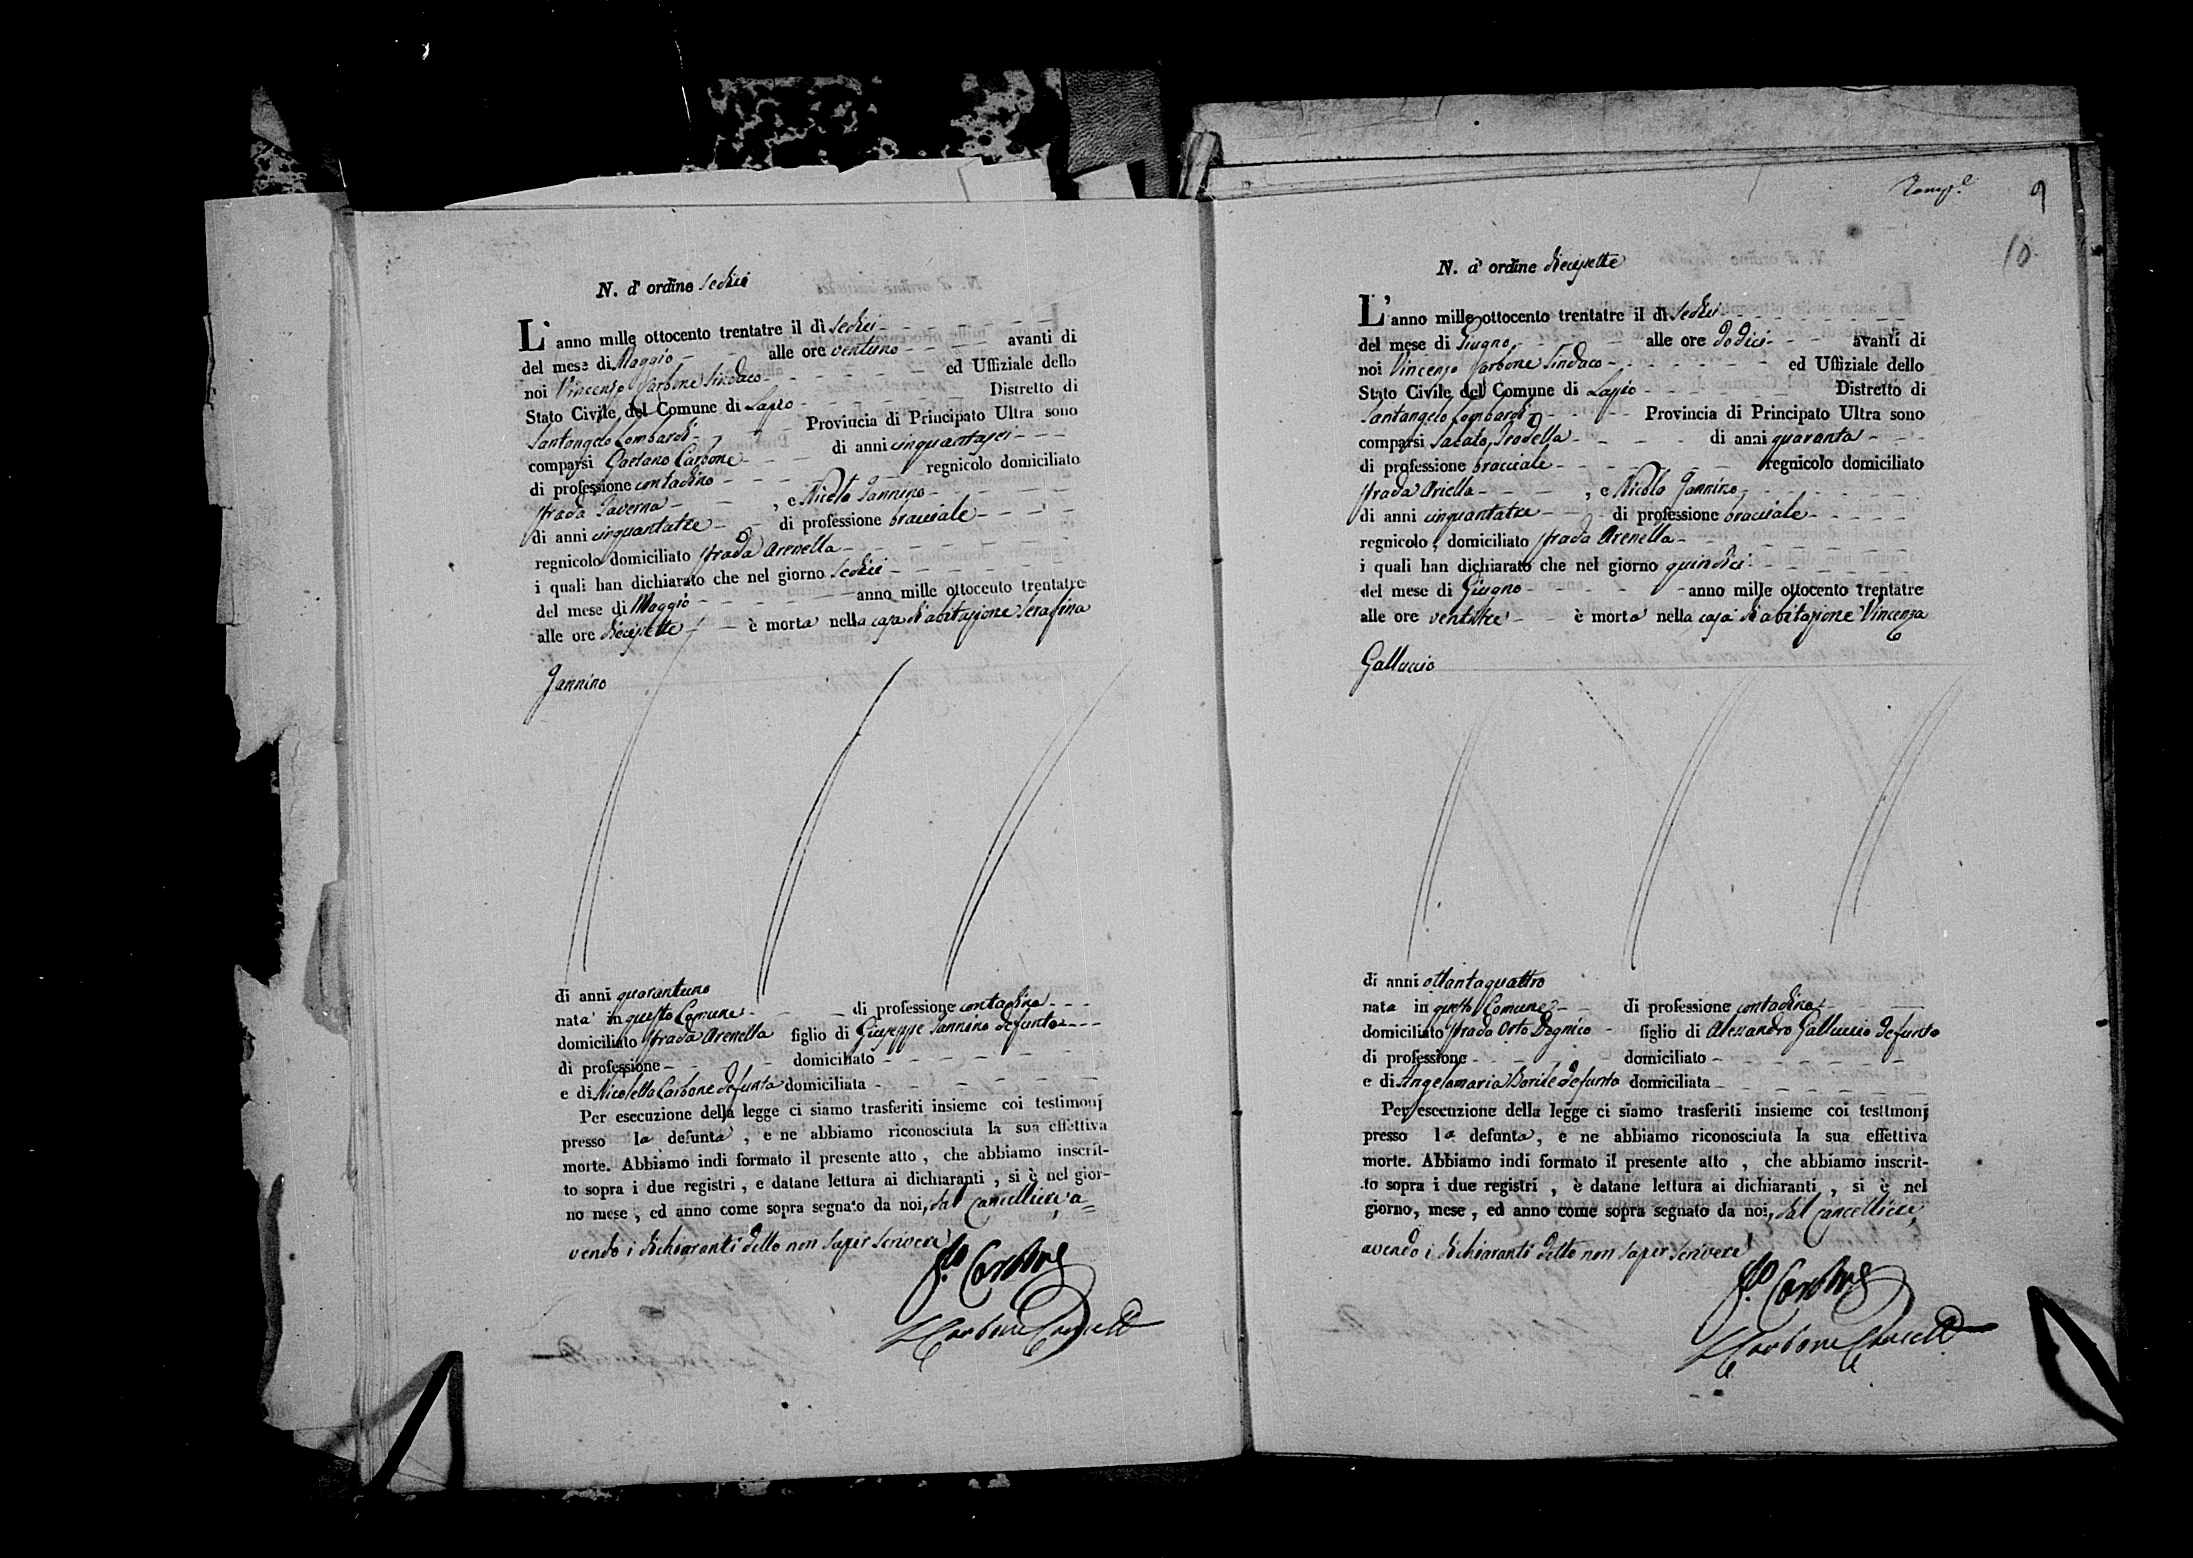 N. d'ordine Sedici
L'anno mille ottocento trentatre il dì Sedici
del mese di Maggio alle ore ventuno avanti di
noi Vincenzo Carbone Sindaco ed Uffiziale dello
Stato Civile del Comune di Lapio Distretto di
Santangelo Lombardi Provincia di Principato Ultra sono
comparsi Gaetano Carbone di anni cinquantasei
di professione contadino regnicolo domiciliato
strada Taverna , e Nicola Jannino
di anni cinquantatre di professione bracciale
regnicolo domiciliato strada Arenella
i quali han dichiarato che nel giorno Sedici
del mese di Maggio anno mille ottocento trentatre
alle ore diecisette è morta nella casa di abitazione Serafina
Jannino
di anni quarantuno
nata in questo Comune di professione contadina
domiciliato strada Arenella figlio di Giuseppe Jannino defunto
di professione domiciliato
e di Nicoletta Carbone defunta domiciliata
Per esecuzione della legge ci siamo trasferiti insieme coi testimonj
presso la defunta , e ne abbiamo riconosciuta la sua effettiva
morte. Abbiamo indi formato il presente atto , che abbiamo inscrit-
to sopra i due registri , e datane lettura ai dichiaranti , si è nel gior-
no mese , ed anno come sopra segnato da noi, dal Cancelliere, a=
vendo i dichiaranti detto non saper scrivere
Carbone
Carbone Cancell
9
10
N. d'ordine diecisette
L'anno mille ottocento trentatre il dì Sedici
del mese di Giugno alle ore dodici avanti di
noi Vincenzo Carbone Sindaco ed Uffiziale dello
Stato Civile del Comune di Lapio Distretto di
Santangelo Lombardi Provincia di Principato Ultra sono
comparsi di anni quaranta
di professione bracciale regnicolo domiciliato
strada Ariella , e Nicola Jannino
di anni cinquantatre di professione bracciale
regnicolo , domiciliato strada Arenella
i quali han dichiarato che nel giorno quindici
del mese di Giugno anno mille ottocento trentatre
alle ore ventitre è morta nella casa di abitazione Vincenza
Galluccio
di anni ottantaquattro
nata in questo Comune di professione contadina
domiciliato strada Orto figlio di Alessandro Galluccio defunto
di professione domiciliato
e di Angelamaria Barile defunta domiciliata
Per esecuzione della legge ci siamo trasferiti insieme coi testimonj
presso la defunta, e ne abbiamo riconosciuta la sua effettiva
morte. Abbiamo indi formato il presente atto , che abbiamo inscrit-
to sopra i due registri , e datane lettura ai dichiaranti , si è nel
giorno, mese , ed anno come sopra segnato da noi, dal Cancelliere,
avendo i dichiaranti detto non saper scrivere
Carbone
Carbone Cancell